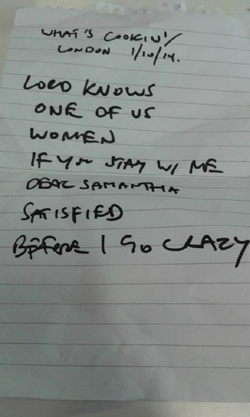 WHAT'S COOKIN'/
LONDON 1/10/14.
LORD KNOWS
ONE OF US
WOMEN
IF YOU STAY W/ ME
DEAR SAMANTHA
SATISFIED
BEFORE I GO CRAZY